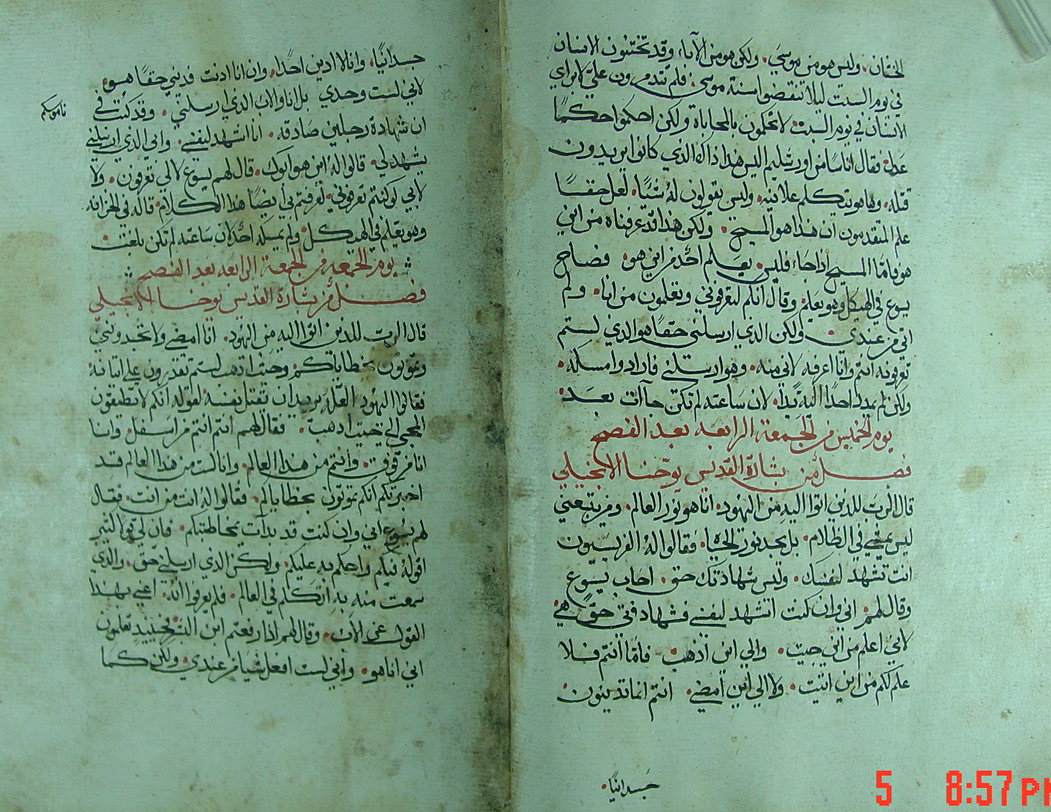 الختان. وليس هو من موسي. ولكن هو من الآباء وقد تختنون الانسان
في يوم السبت ليلا تنقضوا سنة موسى. فلم تتذمرون علي لابراي
الانسان في يوم السبت لا تحكموا بالمحاباة ولكن احكموا حكمًا
عدلا. فقال اناسًا من اورشليم اليس هذا ذاك الذي كانوا يريدون
قتله. وها هوذا يتكلم علانيه. وليس يقولون له شيًا لعل حقًا
علم المتقدمون ان هذا هو المسيح. ولكن هذا قد عرفناه من اين
هو فاما المسيح اذا جاء فليس يعلم احد من اين هو. فصاح
يسوع في الهيكل وهو يعلم. وقال انكم لتعرفوني وتعلمون من اين انا. ولم
اتي من عندي. ولكن الذي ارسلني حقًا هو الذي لستم
تعرفونه انتم وانا اعرفه لاني منه. وهو ارسلني فارادوا مسكه.
ولكن لم يمد احدًا اليه يدًا. لان ساعته لم تكن جاات بعد.
يوم الخميس من الجمعة الرابعه بعد الفصح
فصل من بشارة القديس يوحنا الانجيلي
قال الرب للدين اتوا اليه من اليهود. انا هو نور العالم. ومن يتبعني
ليس يمشي في الظلام. بل يجد نور الحياه. فقالوا له الفريسيون
انت تشهد لنفسك. وليس شهادتك حق. اجاب يسوع
وقال لهم. اني وان كنت اشهد لنفسي فشهادتي حق هي
لاني اعلم من اين جيت. والي اين اذهب. فاما انتم فلا
علم لكم من اين اتيت. ولا الي اين امضي. انتم انما تدينون
جسدانيًا.
جسدانيًا. وانا لا ادين احدًا. وان انا ادنت فديني حقًا هو.
لاني لست وحدي بل انا والاب الذي ارسلني. وقد كتب في
ناموسكم
ان شهادة رجلين صادقه. انا اشهد لنفسي. وابي الذي ارسلني
يشهد لي. قالوا له اين هو ابوك. قال لهم يسوع لا لي تعرفون. ولا
لابي لو كنتم تعرفوني لعرفتم ابي ايضًا هذا الكلام قاله في الخزانه
وهو يعلم في الهيكل. ولم يمسكه احد لان ساعته لم تكن بلغت.
يوم الجمعه من الجمعة الرابعه بعد الفصح
فصل من بشارة القديس يوحنا الانجيلي
قال الرب للدين اتوا اليه من اليهود. انا امضي ولا تجدونني
وتموتون بخطاياكم وحيث اذهب لستم تقدرون علي اتيانه
فقالوا اليهود العله يريد ان يقتل نفسه لقوله انكم لا تطيقون
المجي الي حيث اذهب. فقال لهم انتم انتم من اسفل وانا
انا من فوق. وانتم من هذا العالم. وانا لست من هذا العالم قد
اخبرتكم انكم تموتون بخطاياكم. فقالوا له انت من انت. فقال
لهم يسوع اني وان كنت قد بدأت بمخاطبتكم. فان لي قولا كثير
اقوله فيكم واحكم به عليكم. ولكن الذي ارسلني حق. والذي
سمعت منه به اتكلم في العالم. فلم يعرفوا انه اعني بهذا
القول عن الأب. وقال لهم اذا رفعتم ابن البشر فحينيذ تعلمون
اني انا هو. واني لست افعل شيا من عندي. ولكن كما
5 8:57 PM